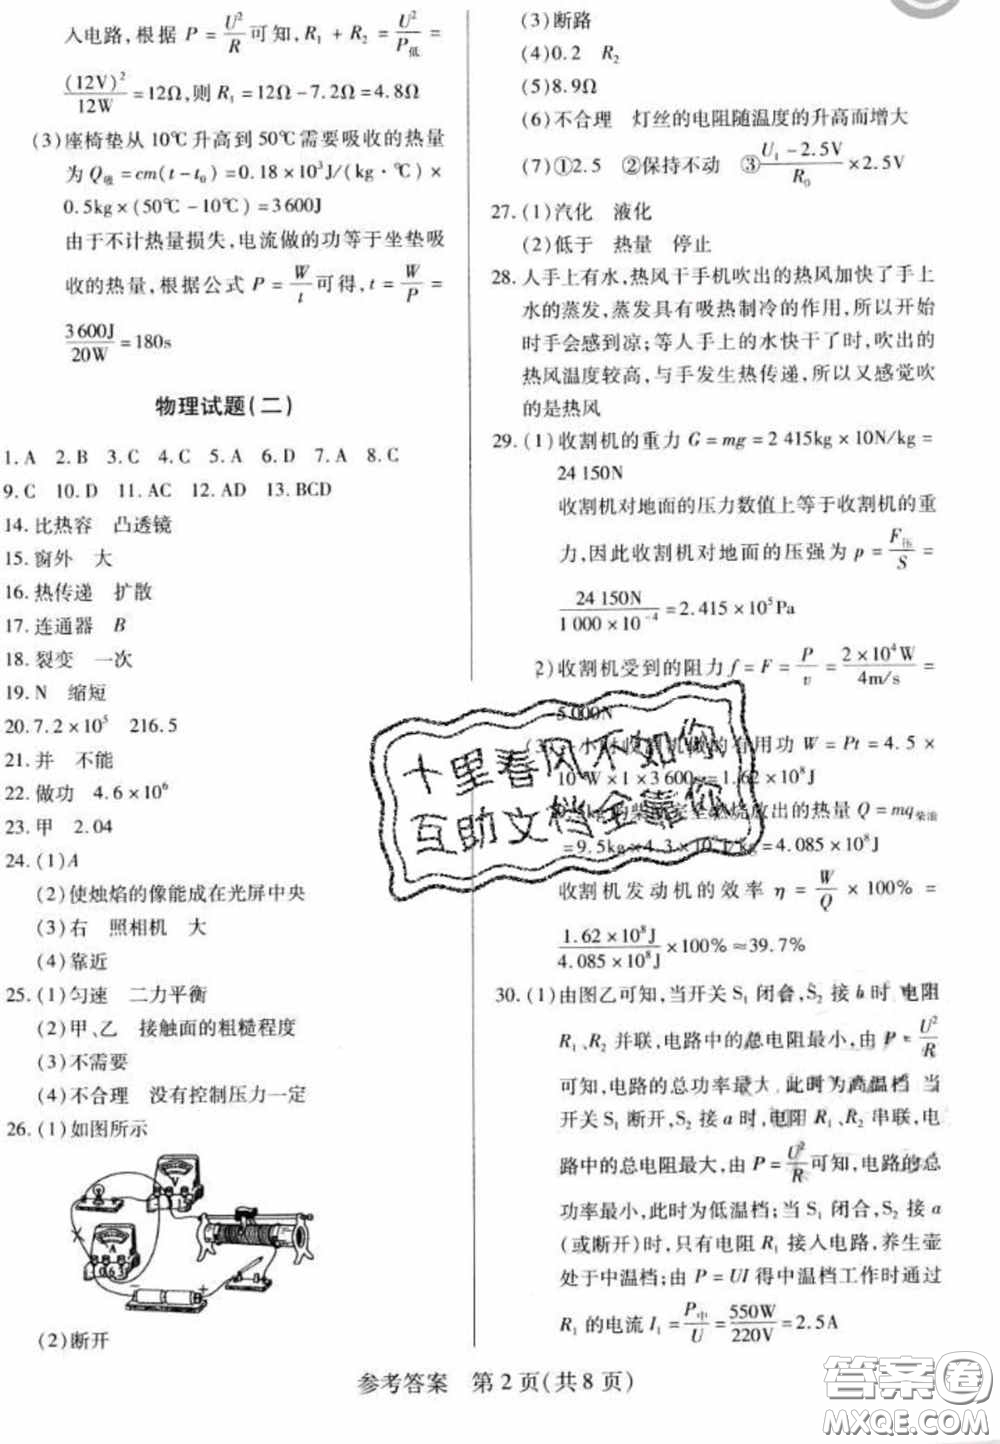 入电路,根据 P = U²/R 可知,R₁ + R₂ = U²/P低 =
(12V)²/12W = 12Ω,则 R₁ = 12Ω - 7.2Ω = 4.8Ω
(3)座椅垫从 10℃ 升高到 50℃ 需要吸收的热量
为 Q吸 = cm(t - t₀) = 0.18 × 10³J/(kg·℃) ×
0.5kg × (50℃ - 10℃) = 3 600J
由于不计热量损失,电流做的功等于坐垫吸
收的热量,根据公式 P = W/t 可得,t = W/P =
3 600J/20W = 180s
物理试题(二)
1. A 2. B 3. C 4. C 5. A 6. D 7. A 8. C
9. C 10. D 11. AC 12. AD 13. BCD
14. 比热容 凸透镜
15. 窗外 大
16. 热传递 扩散
17. 连通器 B
18. 裂变 一次
19. N 缩短
20. 7.2 × 10⁵ 216.5
21. 并 不能
22. 做功 4.6 × 10⁶
23. 甲 2.04
24. (1)A
(2)使烛焰的像能成在光屏中央
(3)右 照相机 大
(4)靠近
25. (1)匀速 二力平衡
(2)甲、乙 接触面的粗糙程度
(3)不需要
(4)不合理 没有控制压力一定
26. (1)如图所示
V
A
(2)断开
(3)断路
(4)0.2 R₂
(5)8.9Ω
(6)不合理 灯丝的电阻随温度的升高而增大
(7)①2.5 ②保持不动 ③(U₁ - 2.5V)/R₀ × 2.5V
27. (1)汽化 液化
(2)低于 热量 停止
28. 人手上有水,热风干手机吹出的热风加快了手上
水的蒸发,蒸发具有吸热制冷的作用,所以开始
时手会感到凉;等人手上的水快干了时,吹出的
热风温度较高,与手发生热传递,所以又感觉吹
的是热风
29. (1)收割机的重力 G = mg = 2 415kg × 10N/kg =
24 150N
收割机对地面的压力数值上等于收割机的重
力,因此收割机对地面的压强为 p = F压/S =
24 150N/1 000 × 10⁻⁴ = 2.415 × 10⁵Pa
2)收割机受到的阻力 f = F = P/v = 2 × 10⁴W/4m/s =
5 000N
小时收割机做的有用功 W = Pt = 4.5 ×
10⁴W × 1 × 3 600s = 1.62 × 10⁸J
的柴油完全燃烧放出的热量 Q = mq柴油
= 9.5kg × 4.3 × 10⁷J/kg = 4.085 × 10⁸J
收割机发动机的效率 η = W/Q × 100% =
1.62 × 10⁸J/4.085 × 10⁸J × 100% ≈ 39.7%
30. (1)由图乙可知,当开关 S₁ 闭合,S₂ 接 b 时,电阻
R₁、R₂ 并联,电路中的总电阻最小,由 P = U²/R
可知,电路的总功率最大,此时为高温档 当
开关 S₁ 断开,S₂ 接 a 时,电阻 R₁、R₂ 串联,电
路中的总电阻最大,由 P = U²/R 可知,电路的总
功率最小,此时为低温档;当 S₁ 闭合,S₂ 接 a
(或断开)时,只有电阻 R₁ 接入电路,养生壶
处于中温档;由 P = UI 得中温档工作时通过
R₁ 的电流 I₁ = P中/U = 550W/220V = 2.5A
十里春风不如你
互助文档全靠你
参考答案 第 2 页(共 8 页)
答案圈
MXQE.COM